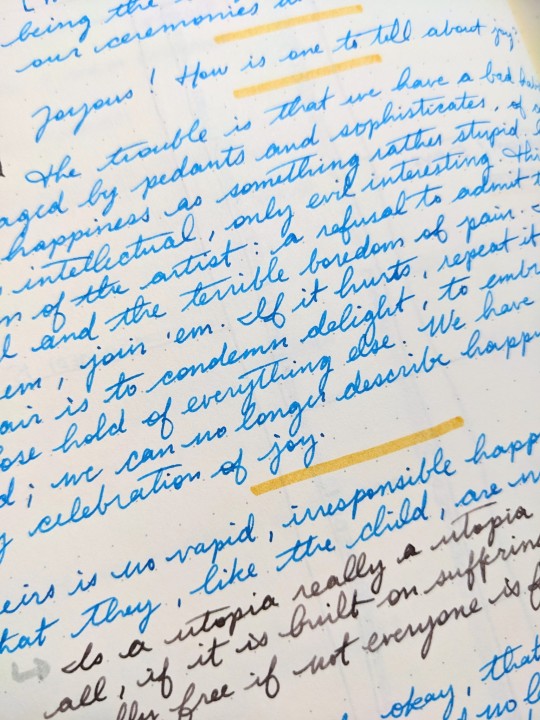 being the
our ceremonies
Joyous! How is one to tell about joy?
The trouble is that we have a bad
aged by pedants and sophisticates, of
happiness as something rather stupid.
intellectual, only evil interesting. This
of the artist: a refusal to admit
and the terrible boredom of pain.
em, join 'em. If it hurts, repeat it
air is to condemn delight, to embr
ose hold of everything else. We have
d; we can no longer describe happy
celebration of joy.
eirs is no vapid, irresponsible happ
hat they, like the child, are
Is a utopia really a utopia
all, if it is built on suffering
lly free if not everyone is f
okay, that